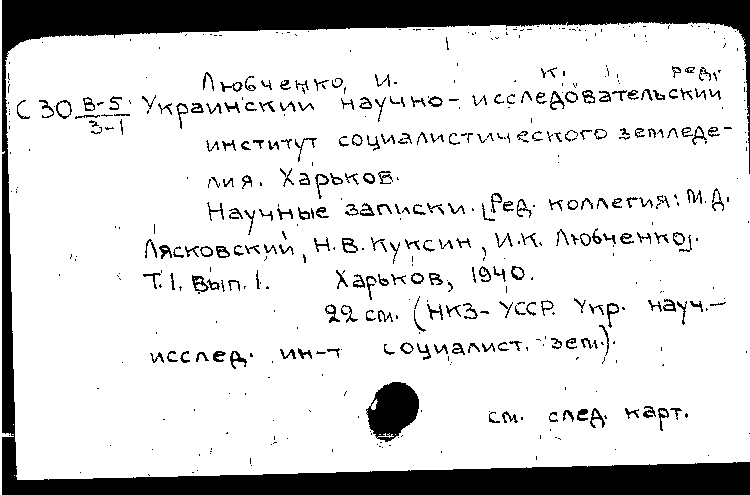 Любченко, И. К., ред.
С 30 В-5/3-1 Украинский научно-исследовательский
институт социалистического земледе-
лия. Харьков.
Научные записки. [Ред. коллегия: М.Д.
Лясковский, Н.В. Куксин, И.К. Любченко].
Т.1. Вып. 1. Харьков, 1940.
22 см. (НКЗ-УССР. Укр. науч.-
исслед. ин-т социалист. зем.).
см. след. карт.